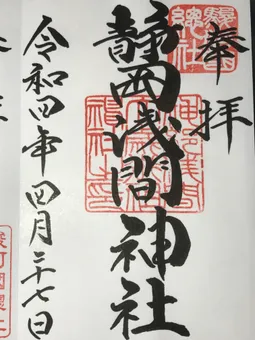 奉拝
總社
靜岡浅間神社
令和四年四月二十七日